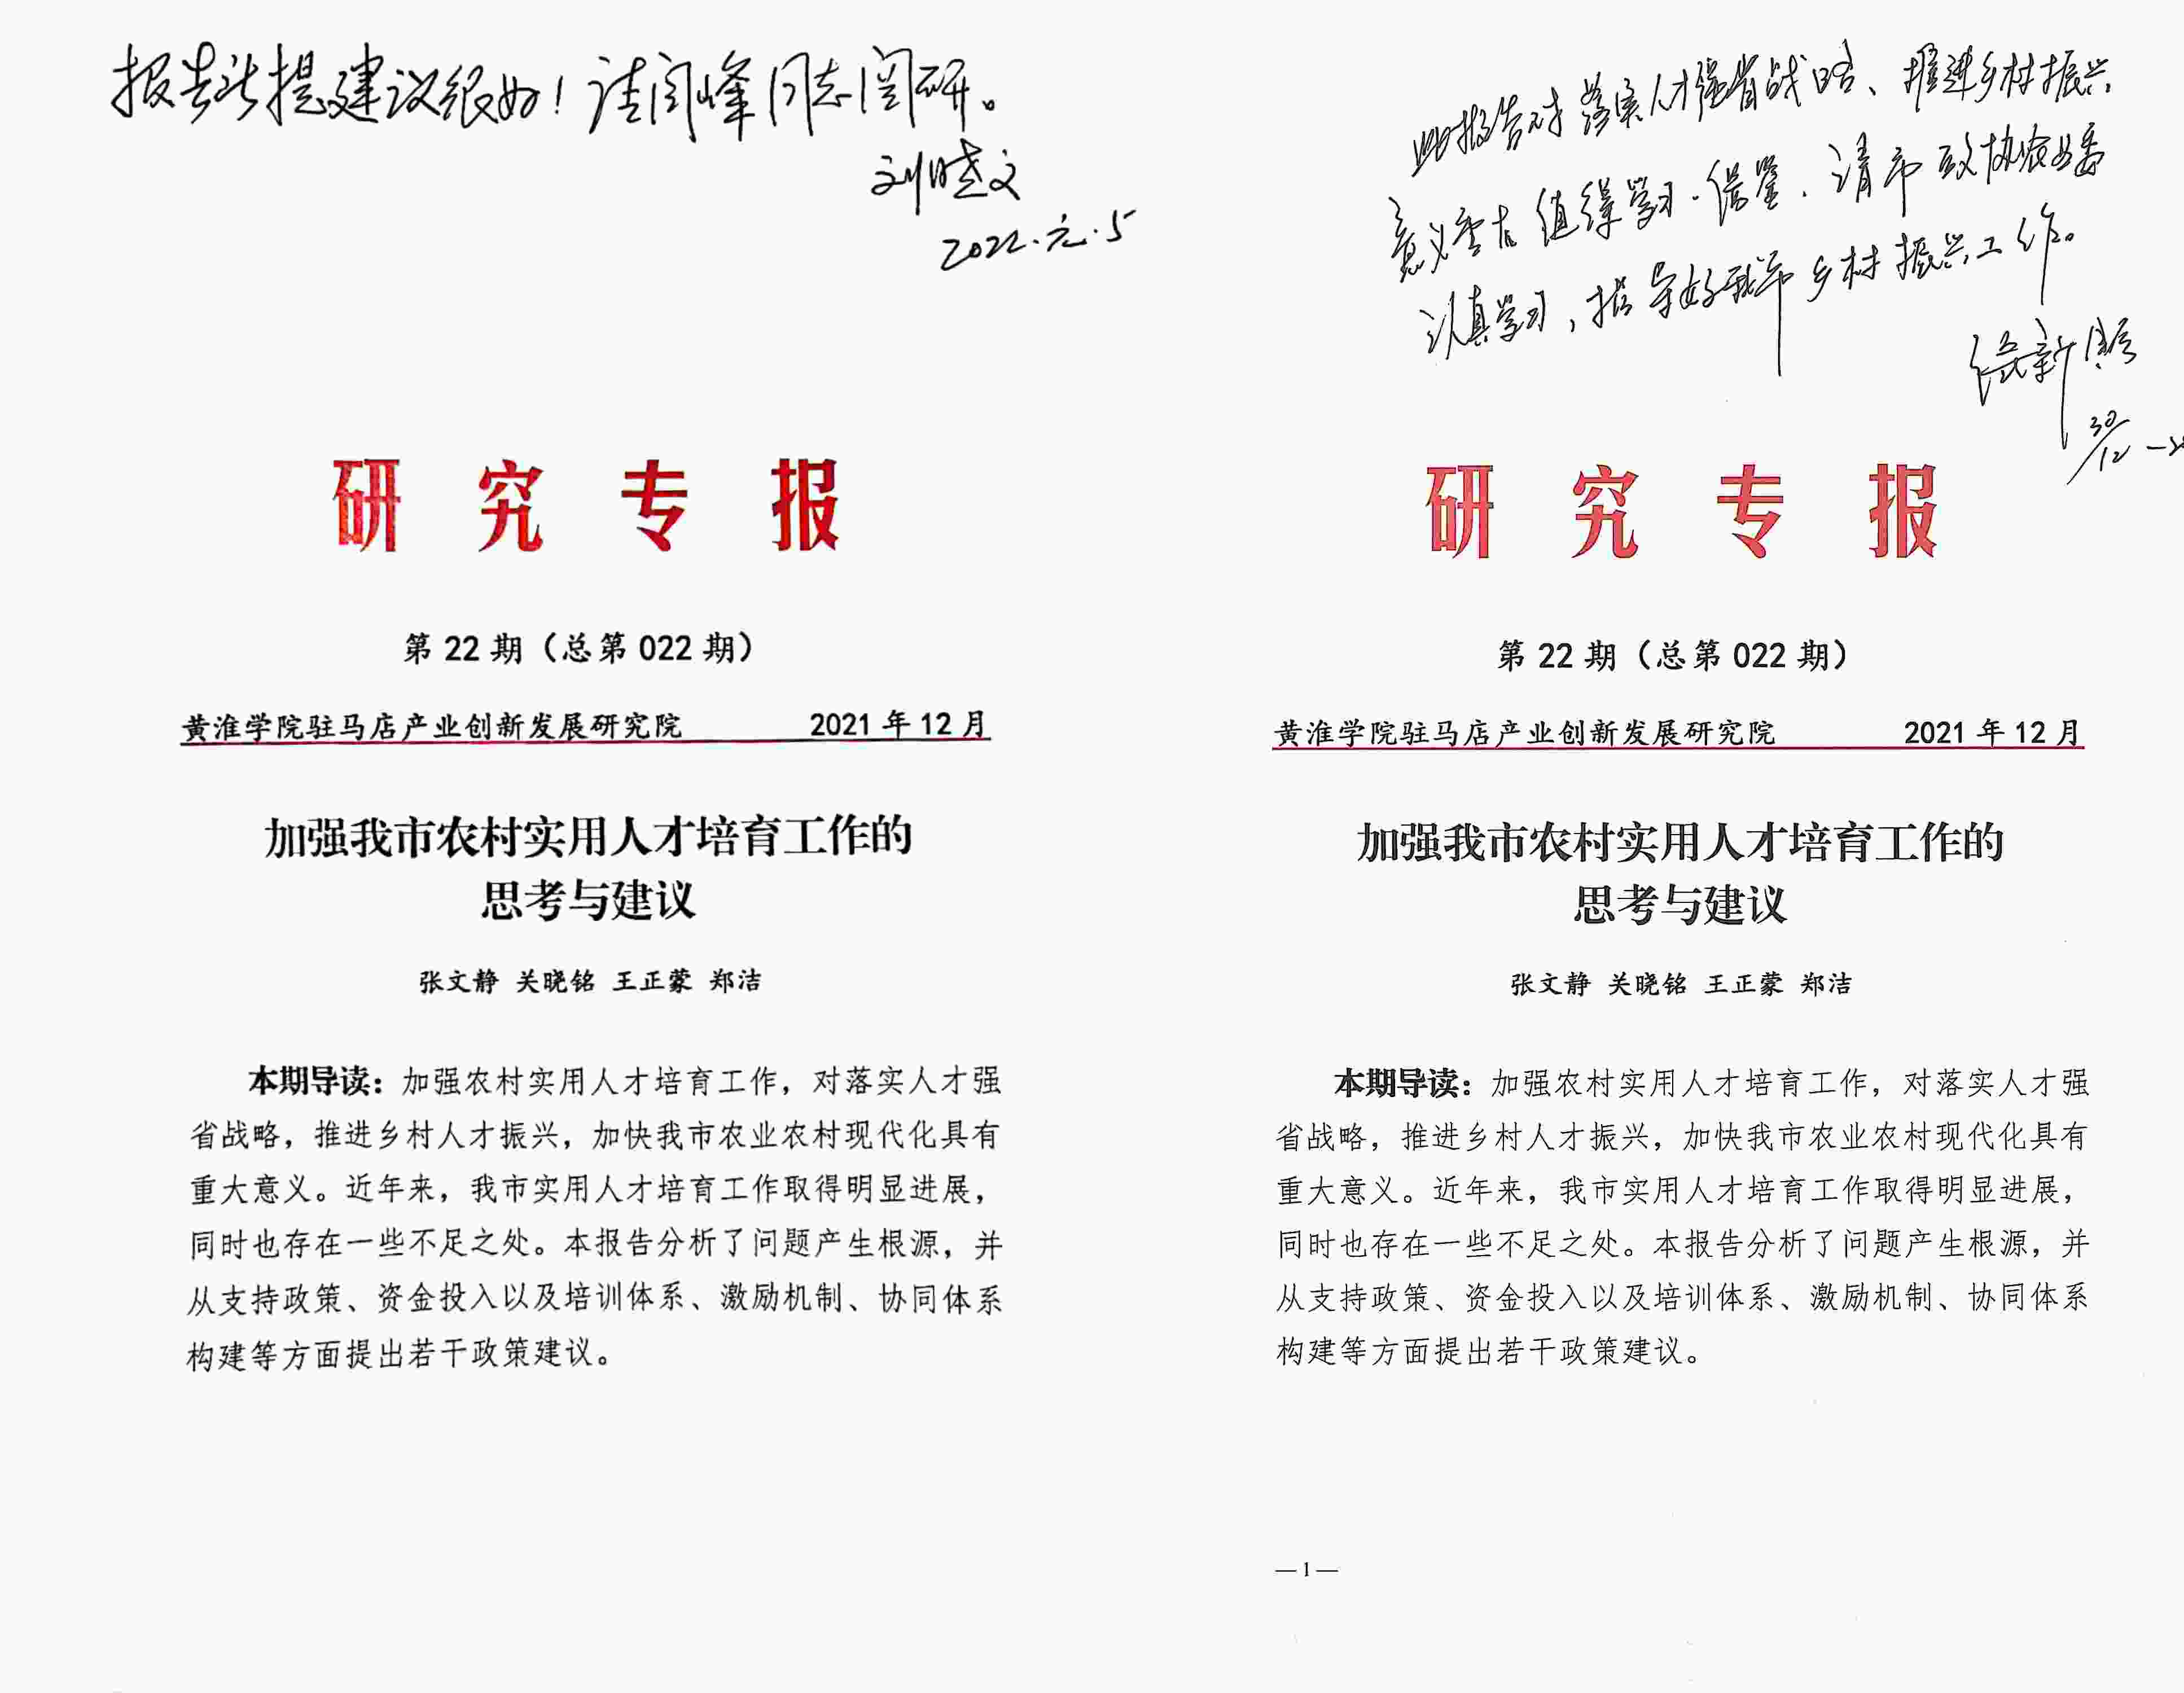 报告所提建议很好！请闫峰同志阅研。
刘晓文
2022.元.5
研究专报
第 22 期（总第 022 期）
黄淮学院驻马店产业创新发展研究院 2021 年 12 月
加强我市农村实用人才培育工作的
思考与建议
张文静 关晓铭 王正蒙 郑洁
本期导读：加强农村实用人才培育工作，对落实人才强
省战略，推进乡村人才振兴，加快我市农业农村现代化具有
重大意义。近年来，我市实用人才培育工作取得明显进展，
同时也存在一些不足之处。本报告分析了问题产生根源，并
从支持政策、资金投入以及培训体系、激励机制、协同体系
构建等方面提出若干政策建议。
此报告对落实人才强省战略、推进乡村振兴
意义重大，值得学习、借鉴，请市政协农业委
认真学习，指导好我市乡村振兴工作。
新
30/12
研究专报
第 22 期（总第 022 期）
黄淮学院驻马店产业创新发展研究院 2021 年 12 月
加强我市农村实用人才培育工作的
思考与建议
张文静 关晓铭 王正蒙 郑洁
本期导读：加强农村实用人才培育工作，对落实人才强
省战略，推进乡村人才振兴，加快我市农业农村现代化具有
重大意义。近年来，我市实用人才培育工作取得明显进展，
同时也存在一些不足之处。本报告分析了问题产生根源，并
从支持政策、资金投入以及培训体系、激励机制、协同体系
构建等方面提出若干政策建议。
— 1 —